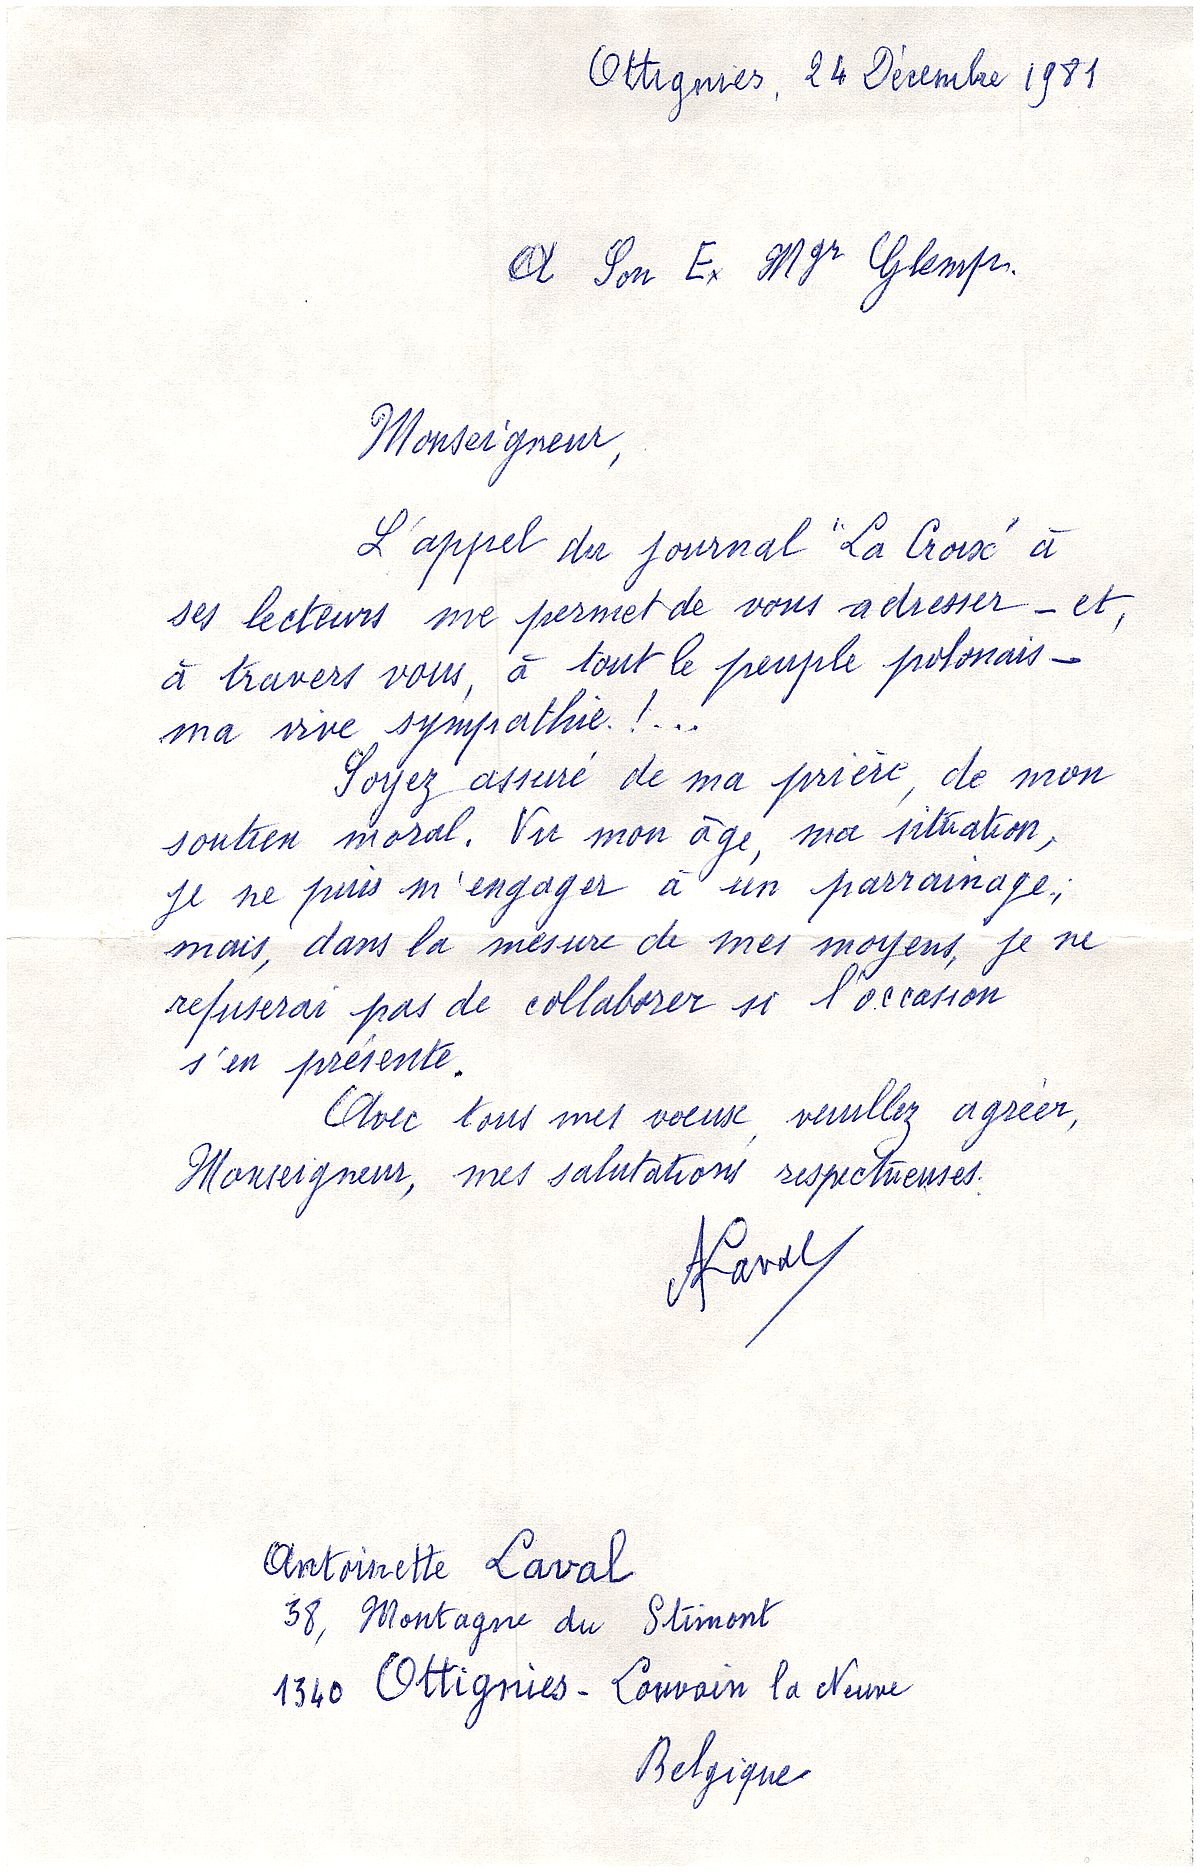 Ottignies, 24 Décembre 1981
A Son Ex Mgr Glemp.
Monseigneur,
L'appel du journal "La Croix" à
ses lecteurs me permet de vous adresser - et,
à travers vous, à tout le peuple polonais -
ma vive sympathie.!...
Soyez assuré de ma prière, de mon
soutien moral. Vu mon âge, ma situation,
je ne puis m'engager à un parrainage;
mais, dans la mesure de mes moyens, je ne
refuserai pas de collaborer si l'occasion
s'en présente.
Avec tous mes voeux, veuillez agréer,
Monseigneur, mes salutations respectueuses.
ALaval
Antoinette Laval
38, Montagne du Stimont
1340 Ottignies - Louvain la Neuve
Belgique